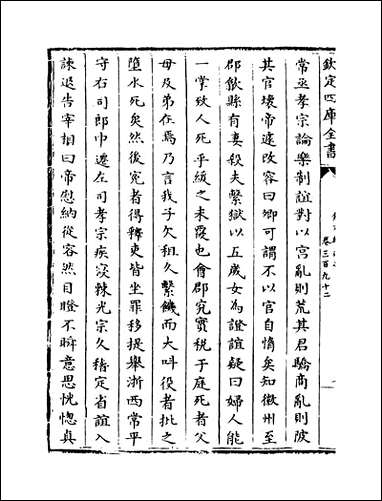 欽定四庫全書
卷三百九十二
常丞孝宗論樂制誼對以宫亂則荒其君驕商亂則陂
其官壞帝遽改容曰卿可謂不以官自惰矣知徽州至
郡歙縣有妻殺夫繫獄以五歲女為證誼疑曰婦人能
一掌致人死乎緩之未覆也會郡究實稅于庭死者父
母及弟在焉乃言我子欠租久繫饑而大叫役者批之
墮水死矣然後寃者得釋吏皆坐罪移提舉浙西常平
守右司郎中遷左司孝宗疾寖棘光宗久稽定省誼入
諫退告宰相曰帝慰納從容然目瞪不瞬意思恍惚真